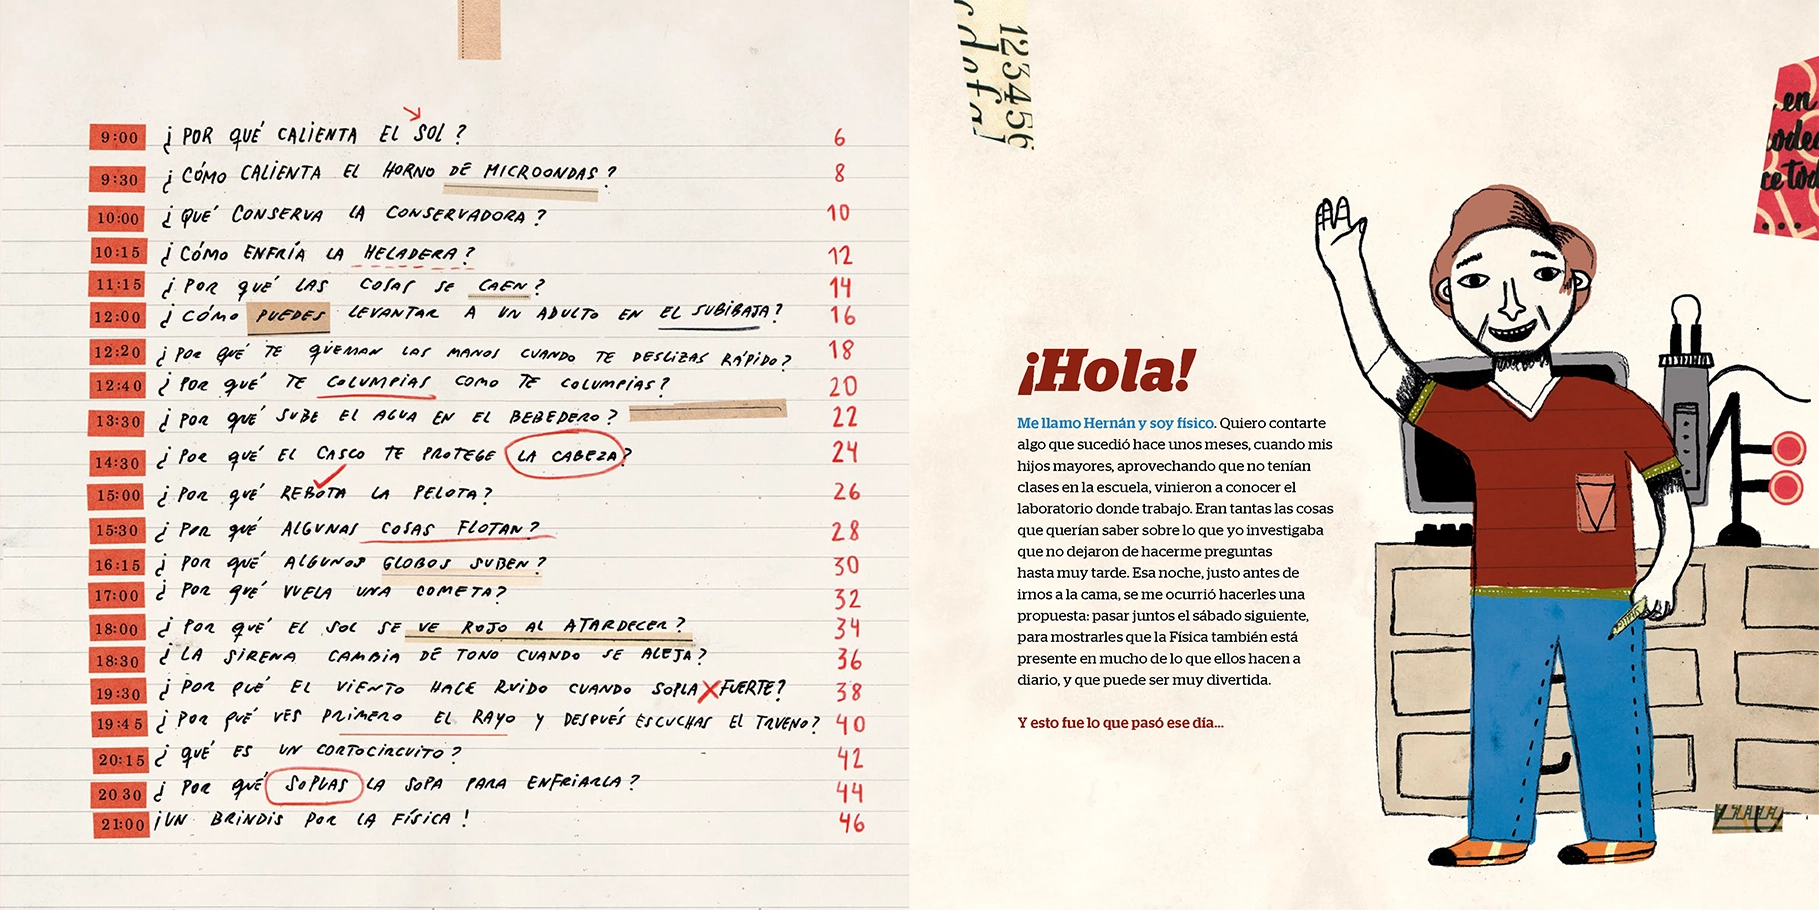 9:00 ¿POR QUÉ CALIENTA EL SOL? 6
9:30 ¿CÓMO CALIENTA EL HORNO DE MICROONDAS? 8
10:00 ¿QUÉ CONSERVA LA CONSERVADORA? 10
10:15 ¿CÓMO ENFRÍA LA HELADERA? 12
11:15 ¿POR QUÉ LAS COSAS SE CAEN? 14
12:00 ¿CÓMO PUEDES LEVANTAR A UN ADULTO EN EL SUBIBAJA? 16
12:20 ¿POR QUÉ TE QUEMAN LAS MANOS CUANDO TE DESLIZAS RÁPIDO? 18
12:40 ¿POR QUÉ TE COLUMPIAS COMO TE COLUMPIAS? 20
13:30 ¿POR QUÉ SUBE EL AGUA EN EL BEBEDERO? 22
14:30 ¿POR QUÉ EL CASCO TE PROTEGE LA CABEZA? 24
15:00 ¿POR QUÉ REBOTA LA PELOTA? 26
15:30 ¿POR QUÉ ALGUNAS COSAS FLOTAN? 28
16:15 ¿POR QUÉ ALGUNOS GLOBOS SUBEN? 30
17:00 ¿POR QUÉ VUELA UNA COMETA? 32
18:00 ¿POR QUÉ EL SOL SE VE ROJO AL ATARDECER? 34
18:30 ¿LA SIRENA CAMBIA DE TONO CUANDO SE ALEJA? 36
19:30 ¿POR QUÉ EL VIENTO HACE RUIDO CUANDO SOPLA FUERTE? 38
19:45 ¿POR QUÉ VES PRIMERO EL RAYO Y DESPUÉS ESCUCHAS EL TRUENO? 40
20:15 ¿QUÉ ES UN CORTOCIRCUITO? 42
20 30 ¿POR QUÉ SOPLAS LA SOPA PARA ENFRIARLA? 44
21:00 ¡UN BRINDIS POR LA FÍSICA! 46
123456
en
¡Hola!
Me llamo Hernán y soy físico. Quiero contarte
algo que sucedió hace unos meses, cuando mis
hijos mayores, aprovechando que no tenían
clases en la escuela, vinieron a conocer el
laboratorio donde trabajo. Eran tantas las cosas
que querían saber sobre lo que yo investigaba
que no dejaron de hacerme preguntas
hasta muy tarde. Esa noche, justo antes de
irnos a la cama, se me ocurrió hacerles una
propuesta: pasar juntos el sábado siguiente,
para mostrarles que la Física también está
presente en mucho de lo que ellos hacen a
diario, y que puede ser muy divertida.
Y esto fue lo que pasó ese día...